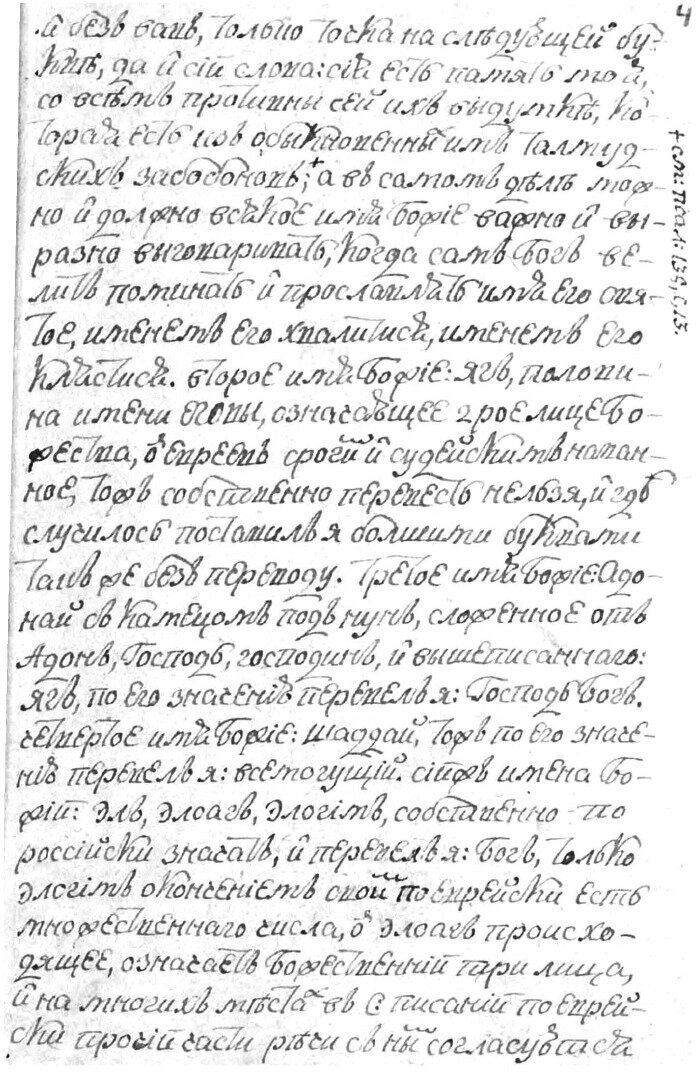 4
й безъ вавъ, только точка на слѣдующей бу-
квѣ, да й сій слова: сія есть память моя,
со всѣмъ противны сей ихъ выдумкѣ, ко-
торая есть изъ обыкновенныхъ имъ талмуд-
скихъ забобоновъ;+ а въ самомъ дѣлѣ мож-
но й должно всякое имя Божіе важно й вы-
разно выговаривать, когда самъ Богъ ве-
литъ поминать й прославлять имя Его свя-
тое, именемъ Его хвалитися, именемъ Его
клястися. второе имя Божіе: ягъ, полови-
на имени еговы, означающее 2 рое лице Бо-
жества, у евреевъ срогій й судейскимъ назван-
ное, тожъ собственно перевесть нельзя, й гдѣ
случилось поставилъ я болшими буквами
такъ же безъ переводу. Третое имя Божіе: Адо-
най съ камецомъ подъ нунъ, сложенное отъ
Адонъ, Господь, господинъ, й вышеписаннаго:
ягъ, по его значенію перевелъ я: Господь Богъ.
четвертое имя Божіе: шаддай, тожъ по его значе-
нію перевелъ я: всемогущій. сіижъ имена Бо-
жій: элъ, элоагъ, элогімъ, собственно по
россійски значатъ, й перевелъ я: Богъ, только
элогімъ окончєніемъ своимъ по еврейски есть
множественнаго числа, ѿ элоагъ происхо-
дящее, означаетъ Божественній три лица,
й на многихъ мѣстахъ въ С писаній по еврей-
ски прочій части рѣчи съ нымъ согласуются
+ см: псал: 134, с. 13.